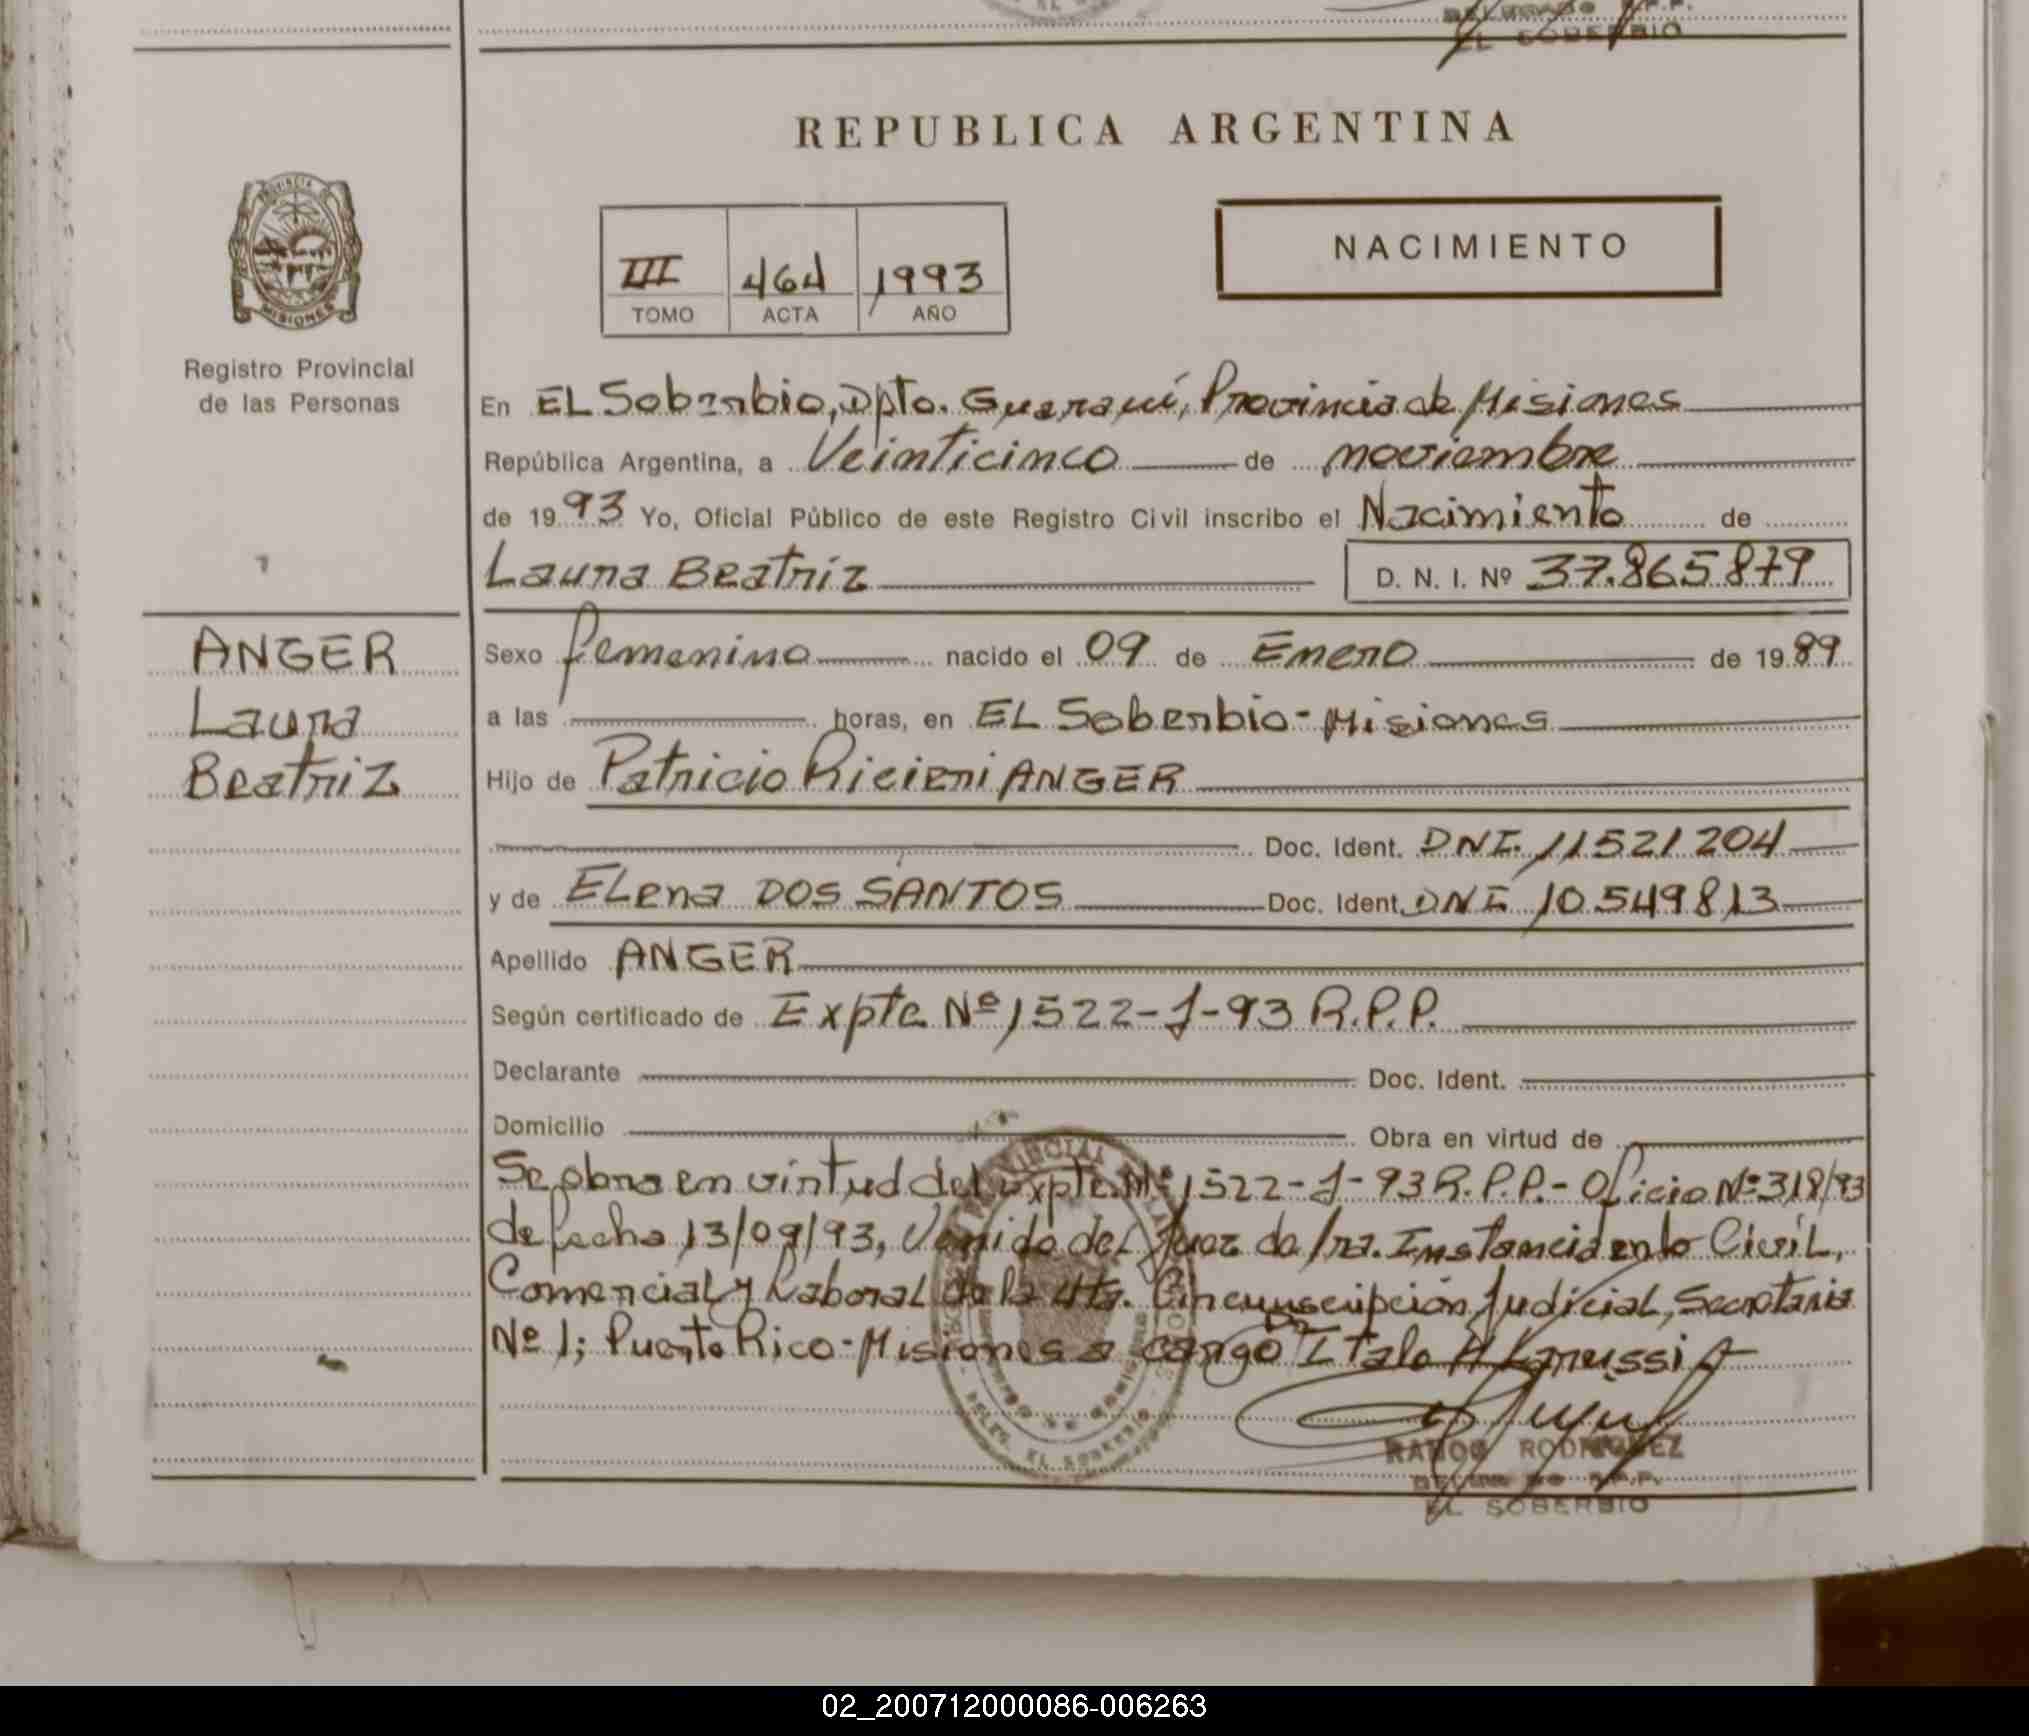 EL SOBERBIO
REPUBLICA ARGENTINA
NACIMIENTO
III 464 1993
TOMO ACTA AÑO
PROVINCIA DE
MISIONES
Registro Provincial
de las Personas
En EL Soberbio, Dpto. Guaraní, Provincia de Misiones
República Argentina, a Veinticinco de noviembre
de 1993 Yo, Oficial Público de este Registro Civil inscribo el Nacimiento de
Laura Beatriz D. N. I. Nº 37.865879
ANGER
Laura
Beatriz
Sexo femenino nacido el 09 de Enero de 1989
a las horas, en EL Soberbio - Misiones
Hijo de Patricio Ricieri ANGER
Doc. Ident. DNI. 11521204
y de ELena DOS SANTOS Doc. Ident. DNI 10549813
Apellido ANGER
Según certificado de Expte Nº 1522-J-93 R.P.P.
Declarante Doc. Ident.
Domicilio Obra en virtud de
Se obra en virtud del expte. Nº 1522-J-93 R.P.P.- Oficio Nº 318/93
de fecha 13/09/93, Venido del Juez de 1ra. Instancia en lo Civil,
Comercial y Laboral de la 4ta. Circunscripción Judicial, Secretaria
Nº 1; Puerto Rico - Misiones a cargo Dr Italo A
RAMON RODRIGUEZ
R.P.P.
EL SOBERBIO
02_200712000086-006263